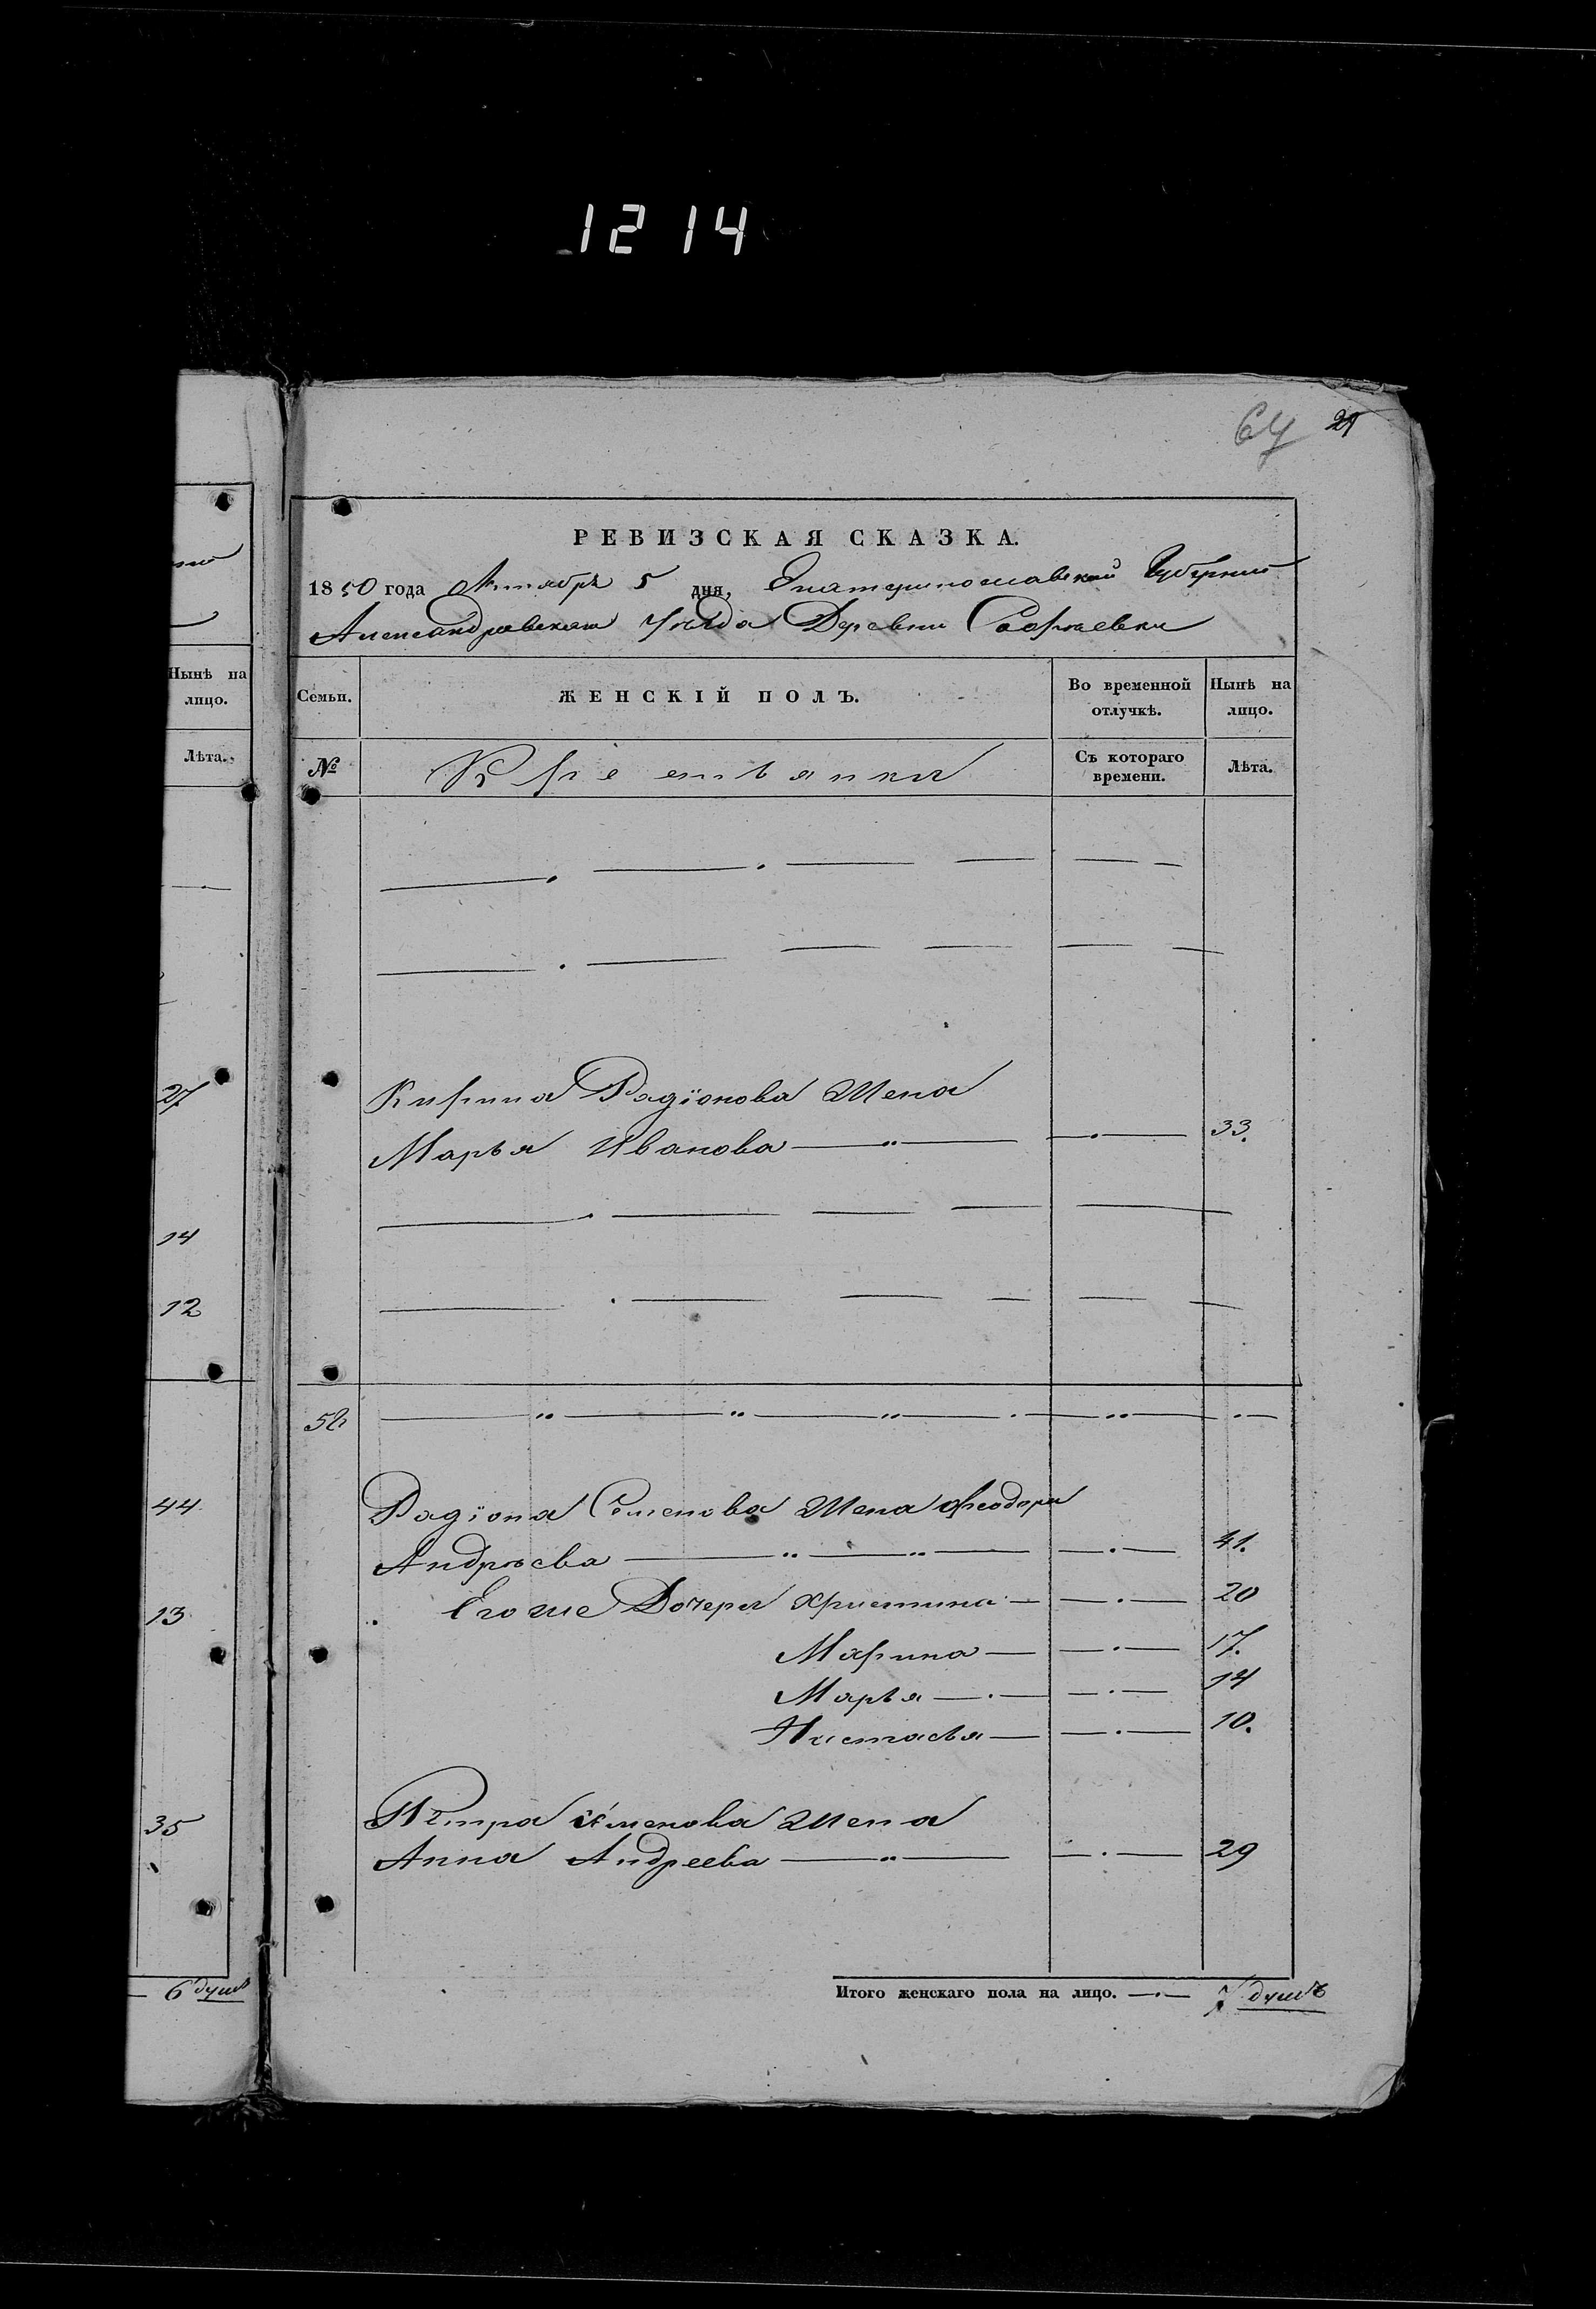 1214
64 21
РЕВИЗСКАЯ СКАЗКА.
1850 года Октября 5 дня, Екатеринославской Губернии
Александровскаго Уѣзда Деревни
Нынѣ на лицо.
Лѣта.
Семьи.
ЖЕНСКІЙ ПОЛЪ.
Во временной отлучкѣ.
Нынѣ на лицо.
№
Крестьянки
Съ котораго времени.
Лѣта.
27
Родіонова Жена
Марья Иванова 33.
14
12
52
44
Радіона Семенова Жена Феодора
Андрѣева 41.
Его же Дочери Христина 20
13
Марина 17.
Марья 14
Настасья 10.
35
Петра Семенова Жена
Анна Андреева 29
6 душъ
Итого женскаго пола на лицо. 7 душъ